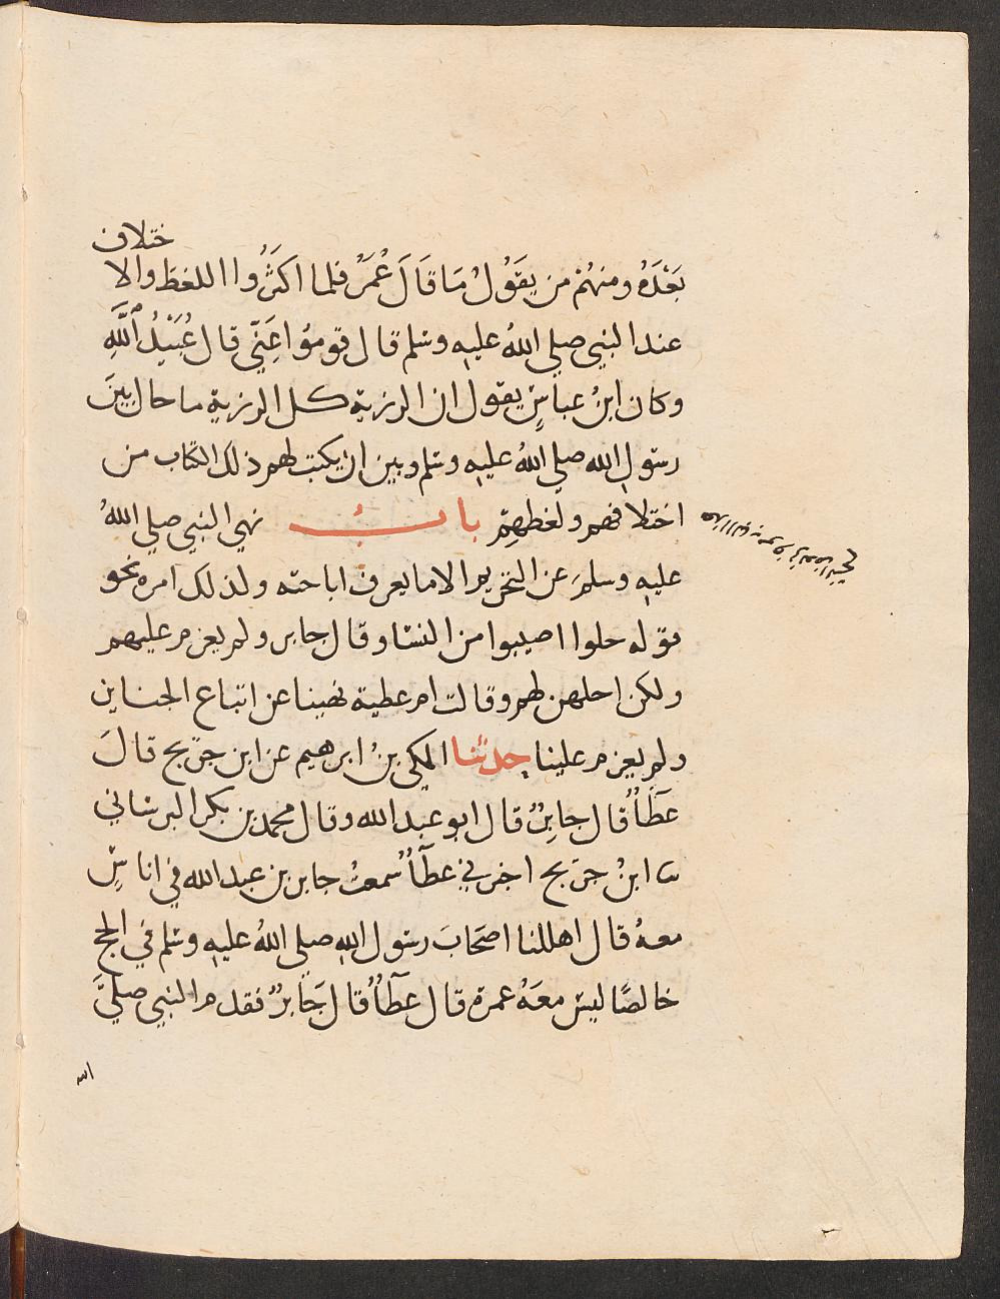 ختلاف
بَعْدَهُ ومنهُمْ من يقَوُلُ مَا قَالَ عُمَرُ فلما اكثَرُوا اللغطَ والا
عند النبي صلي اللهُ عليه وسلم قال قومُوا عِنّي قال عُبَيْدُ اللَّهِ
وكان ابنُ عباسٍ يقول ان الرزية كل الرزية ما حال بينَ
رسول الله صلي اللهُ عليه وسلم وبين ان يكتب لهم ذلك الكتاب من
اختلافهم ولغطهِمْ بابُ نهي النبي صلي اللهُ
عليه وسلمَ عن التحريم الا ما يعرف اباحته ولذلك امره نحو
قوله حلوا اصيبوا من النسا وقال جابر ولم يعزم عليهم
ولكن احلهن لهم وقالت ام عطية نهينا عن اتباع الجنايز
ولم يعزم علينا حدثنا المكي بنُ ابرهيم عن ابن جريج قالَ
عَطَآُ قال جابِرٌ قال ابو عبد الله وقال محمد بن بكر البرساني
ثنا ابنُ جريج اخبرني عطآُ سمعتُ جابر بن عبد الله في اناسٍ
معهُ قال اهللنا اصحَابَ رسول الله صلي اللهُ عليه وسلم في الحج
خالصًا ليسَ معَهُ عمرة قال عطآُ قال جَابرٌ فقدم النبي صلي
الله